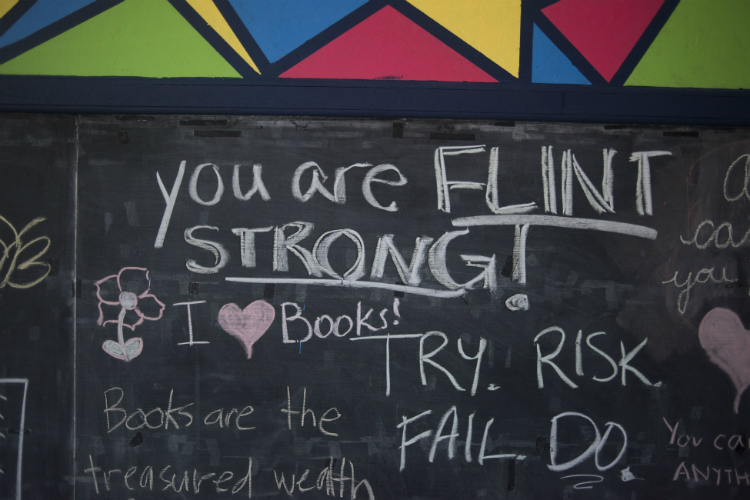 you are FLINT
STRONG!
I ❤ Books!
TRY. RISK.
FAIL. DO.
Books are the
treasured wealth
you
You
ANYTH